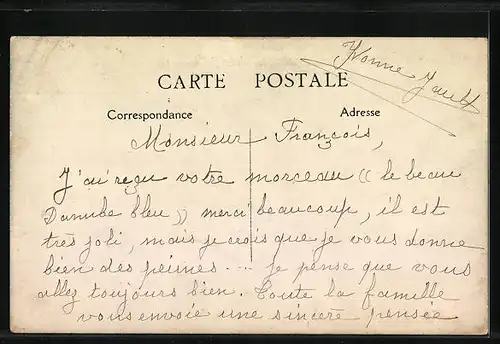 Yvonne Jault
CARTE POSTALE
Correspondance
Adresse
Monsieur François,
J'ai reçu votre morceau (( le beau
Danube bleu )) merci beaucoup, il est
très joli, mais je crois que je vous donne
bien des peines... je pense que vous
allez toujours bien. Toute la famille
vous envoie une sincère pensée